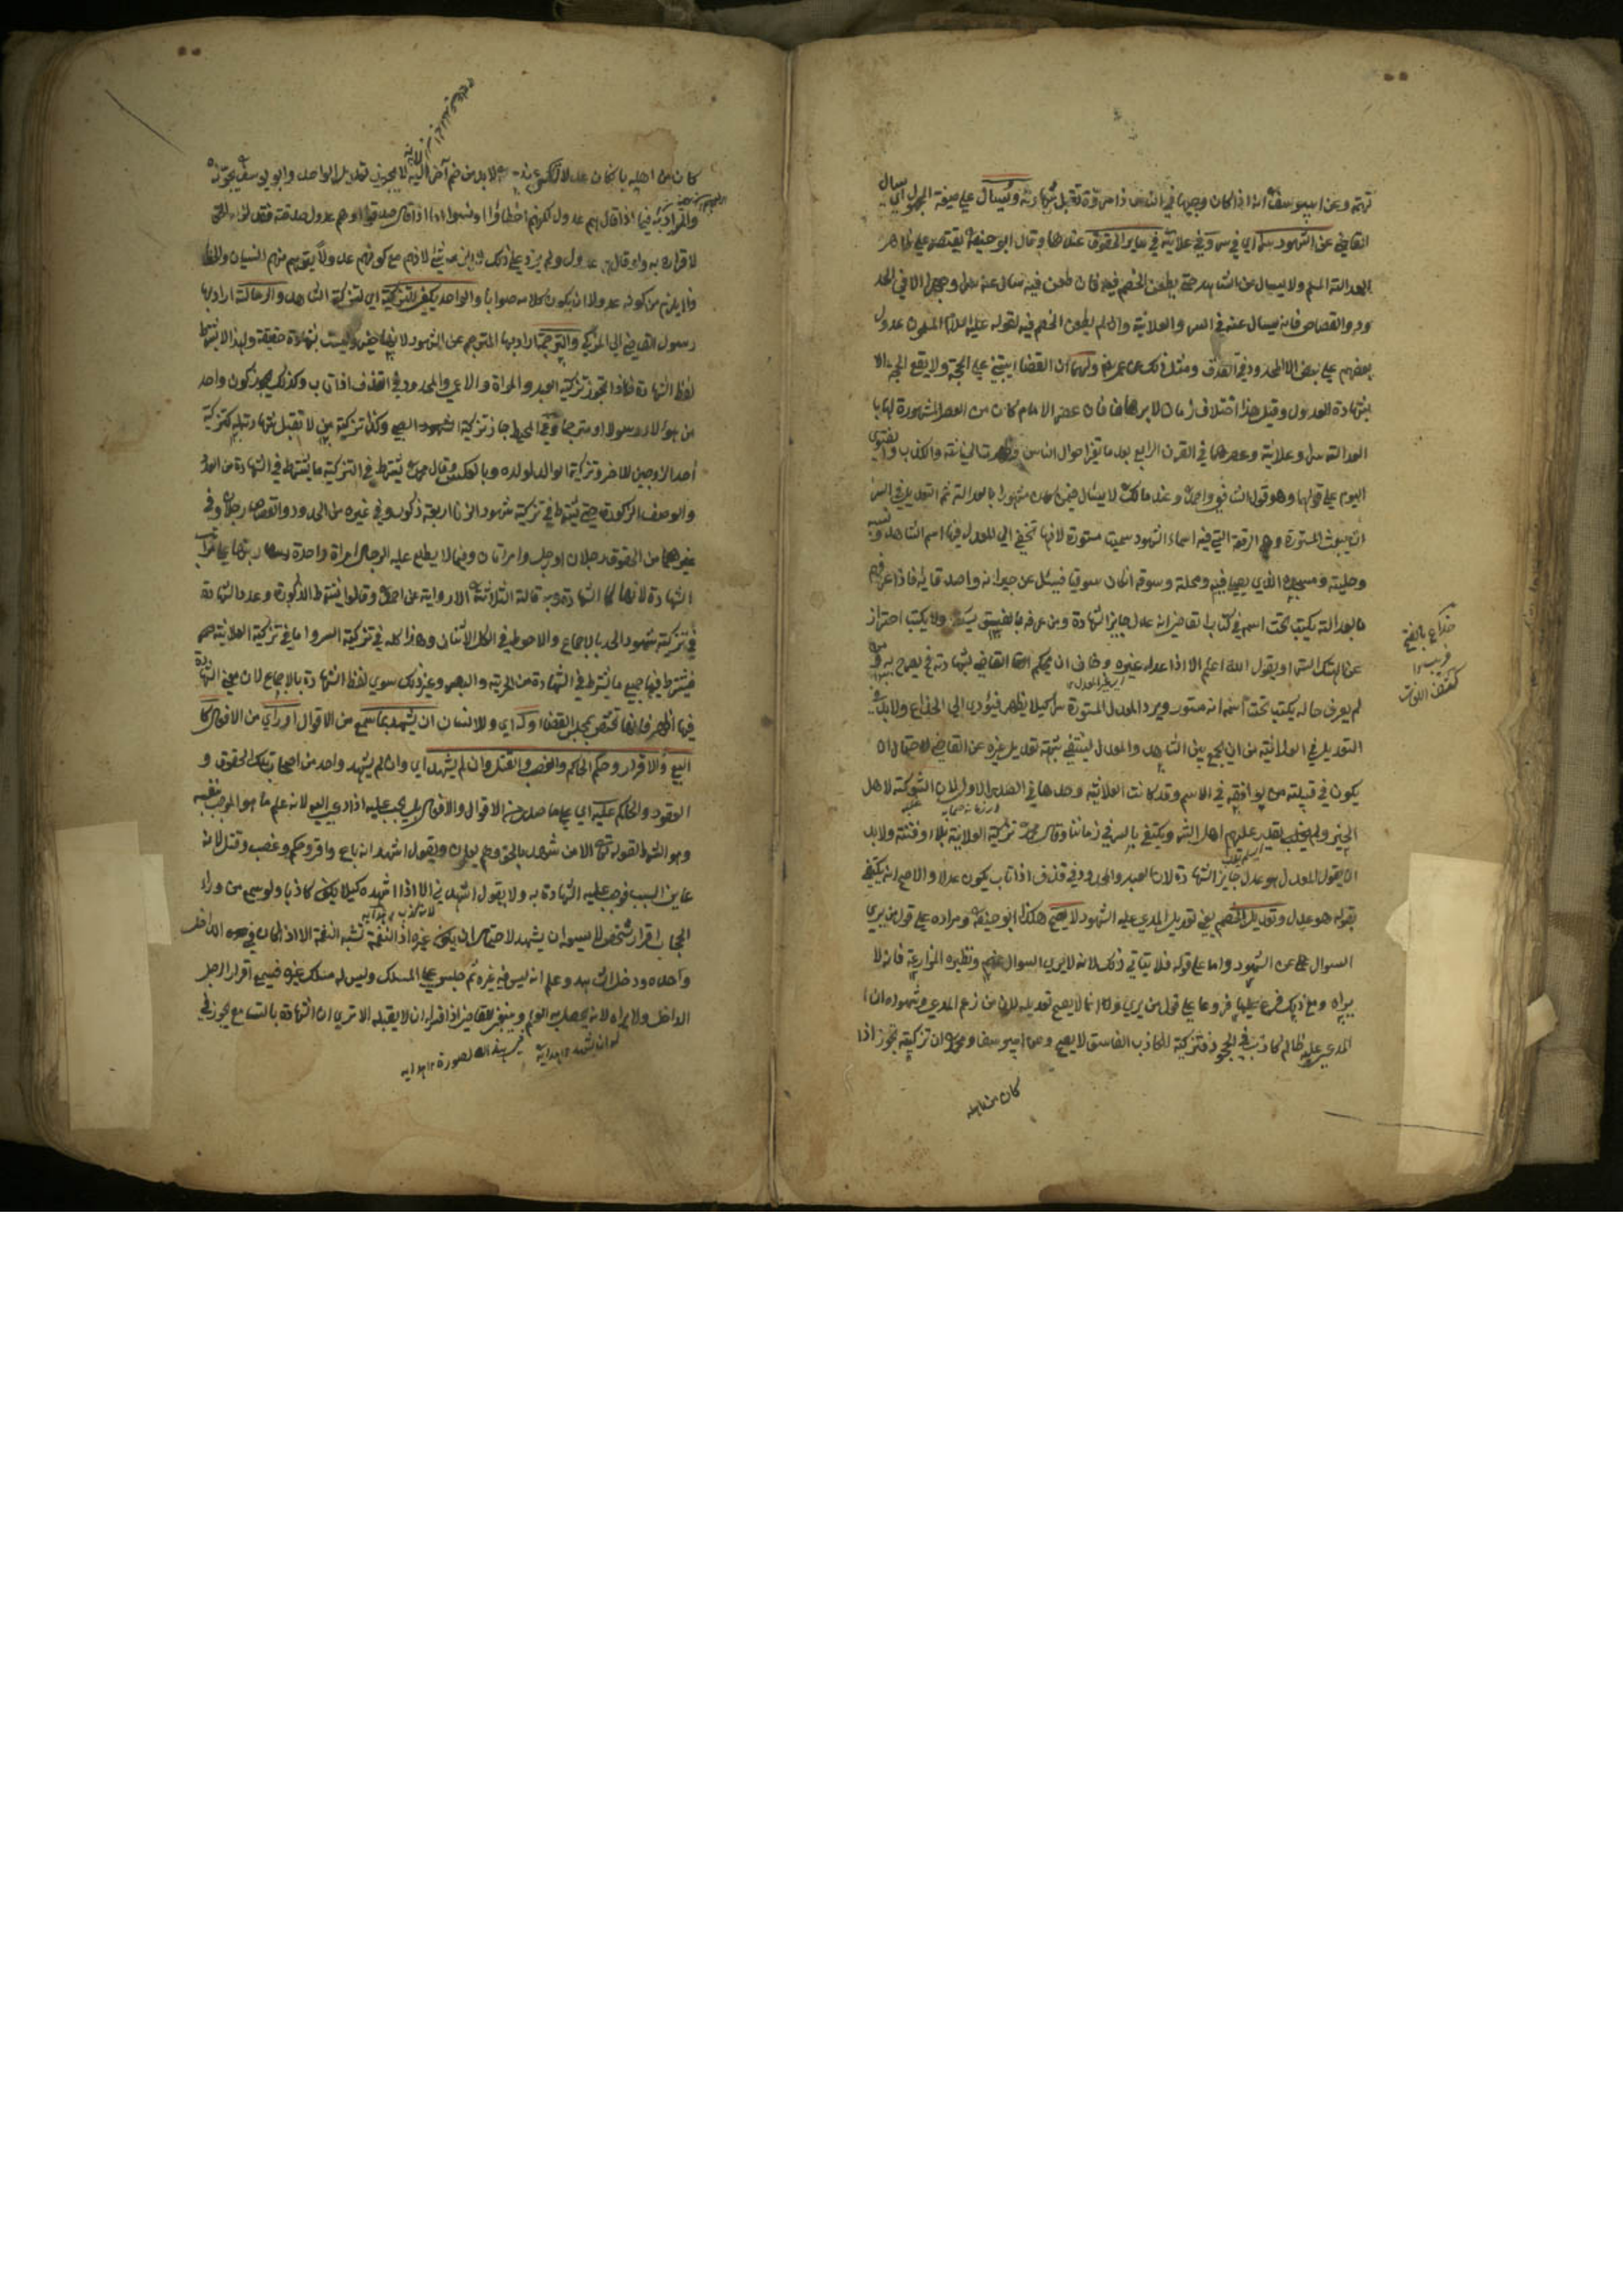 تهمة وعن ابييوسف انه اذا كان وجيها في الناس ذا مروة تقبل شهادته ويسال على صيغة المجهول اي يسال
القاضي عن الشهود سرا اي في سر وفي علانية في ساير الحقوق عندهما وقال ابو حنيفة يقتصر على ظاهر
العدالة المسلم ولا يسال عن الشاهد حتى يطعن الخصم فيه فان طعن فيه سال عنه الا في الحد
ود والقصاص فانه يسال عنه في السر والعلانية وان لم يطعن الخصم فيه لقوله عليه السلام المسلمون عدول
بعضهم على بعض الا المحدود في القذف ومثل ذلك عن عمر ولهما ان القضا يبتني على الحجة ولا يقع الحجة الا
بشهادة العدول وقيل هذا اختلاف زمان لا برهان فان عصر الامام كان من العصر المشهورة لها با
لعدالة سرا وعلانية وعصرهما في القرن الرابع بعد ما تغير احوال الناس وظهرت الخيانة والكذب والفتوى
اليوم على قولهما وهو قول الشافعي واحمد وعند مالك لا يسال فيمن كان مشهورا بالعدالة ثم التعديل في السر
ان يبعث المستورة وهي الرقعة التي فيه اسماء الشهود سميت مستورة لانها تخفي الى المعدل فيها اسم الشاهد ونسبه
وحليته ومسجده الذي يصلي فيه ومحلة وسوقه ان كان سوقيا فيسئل عن جيرانه واصدقائه فاذا عرفهم
بالعدالة يكتب تحت اسمه في كتاب القاضي انه عدل جايز الشهادة ومن عرفه بالفسق ولا يكتب احتراز
عن الهتك الستر او يقول الله اعلم الا اذا عدله غيره وخاف ان يحكم القاضي بشهادته فح يصرح به ومن
لم يعرف حاله يكتب تحت اسمه انه مستور ويرد المعدل المستورة سرا كيلا يظهر فيؤدي الى الخداع ولا بد في
التعديل في العلانية من ان يجمع بين الشاهد والمعدل لينتفي شبهة تعديل غيره عن القاضي لاحتمال ان
يكون في قبيلته من يوافقه في الاسم وقد كانت العلانية وحدها في الصدر الاول لان الشوكة لاهل
الخير ولم يغلب عليهم اهل الشر ويكتفي بالسر في زماننا وقال محمد تزكية العلانية بلاء وفتنة ولا بد
ان يقول المعدل هو عدل جايز الشهادة لان العبد والمحدود في قذف اذا تاب يكون عدلا والاصح انه يكتفي
بقوله هو عدل وتعديل الخصم يعني تعديل المدعي عليه الشهود لا يصح هكذا ابو حنيفة ومراده على قول من يرى
السوال عن الشهود واما على قوله فلا يتاتي ذلك لانه لا يرى السوال عنهم ونظيره المزارعة فانه لا
يراه ومع ذلك فرع عليها فروعا على قول من يرى وانما لا يصح تعديله لان من زعم المدعي وشهوده ان ا
لمدعي عليه ظالم كاذب في الجحود فتزكية للكاذب الفاسق لا يصح وعن ابييوسف ومحمد ان تزكيته تجوز اذا
كان من اهله
خداع بالفتح
كشف اللغات
كان من اهله بان كان عدلا لا بد من ضم آخر اليه لا يجوز تعديل الواحد وابو يوسف يجوزه
والمراد به فيما اذا قال هم عدول لكنهم اخطاؤا او نسوا اما اذا قال صدقوا او هم عدول صدقة فقد لزمه الحق
لاقراره به ولو قال هم عدول ولم يزد على ذلك لا يلزمه شئ لانهم مع كونهم عدولا يتوهم منهم النسيان والخطا
فلا يلزم من كونه عدولا ان يكون كلامه صوابا والواحد يكفي للتزكية اي لتزكية الشاهد والرسالة اراد بها
رسول القاضي الى المزكي والترجمة اراد بها المترجم عن الشهود لانها خبر وليست بشهادة حقيقة ولهذا لا يشترط
لفظ الشهادة فلذا تجوز تزكية العبد والمراة والاعمى والمحدود في القذف اذا تاب وكذلك يجوز كون واحد
من هولاء رسولا او مترجما وفي المحيط جاز تزكية الصبي وكذا تزكية من لا تقبل شهادته له كتزكية
احد الزوجين للاخر وتزكية الوالد لولده وبالعكس وقال محمد يشترط في التزكية ما يشترط في الشهادة من العدد
والوصف الذكورة حتى يشترط في تزكية شهود الزنا اربعة ذكور وفي غيره من الحدود والقصاص رجلان وفي
غيرهما من الحقوق رجلان او رجل وامراتان وفيما لا يطلع عليه الرجال امراة واحدة
الشهادة وبه قالت الثلاثة الا رواية عن احمد وقالوا يشترط الذكورة وعدد الشهادة
في تزكية شهود الحد بالاجماع والاحوط في الكل الاثنان وهذا كله في تزكية السر واما في تزكية العلانية
فيشترط فيها جميع ما يشترط في الشهادة من الحرية والبصر وغير ذلك سوى لفظ الشهادة بالاجماع لان معنى الشهادة
فيها اظهر فانها تختص بمجلس القضا وله اي وللانسان ان يشهد بما سمع من الاقوال او راي من الافعال كا
لبيع والاقرار وحكم الحاكم والغصب والقتل وان لم يشهد اي وان لم يشهد واحد من اصحاب تلك الحقوق و
العقود والحاكم عليه اي على ما صدر من الاقوال والافعال بل يجب عليه اذا دعي اليه لانه علم ما هو الموجب بنفسه
وهو الشرط لقوله تعالى الا من شهد بالحق وهم يعلمون ويقول اشهد انه باع واقر وحكم وغصب وقتل لانه
عاين السبب فوجب عليه الشهادة به ولا يقول اشهدني الا اذا اشهده كيلا يكون كاذبا ولو سمع من وراء
الحجاب اقرار شخص لا يسعه ان يشهد لاحتمال ان يكون غيره اذ النغمة تشبه النغمة الا اذا كان في الداخل
واحده ودخل الشاهد وعلم انه ليس فيه غيره ثم جلس على المسلك وليس له مسلك غيره فسمع اقرار الرجل
الداخل ولا يراه لانه يحصل به العلم وينبغي للقاضي اذا فسر له ان لا يقبله الا ترى ان الشهادة بالتسامع يجوز في
له ان يشهد هدايه